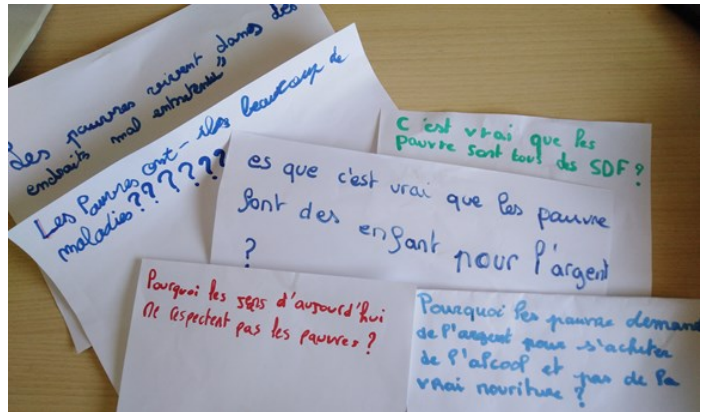 Les pauvres vivent dans des
endroits mal entretenus
Les Pauvres ont-ils beaucoup de
maladies???????
C'est vrai que les
pauvre sont tous des SDF?
es que c'est vrai que les pauvre
font des enfant pour l'argent
?
Pourquoi les gens d'aujourd'hui
ne respectent pas les pauvres?
Pourquoi les pauvre deman
de l'argent pour s'acheter
de l'alcool et pas de la
vrai nouriture?